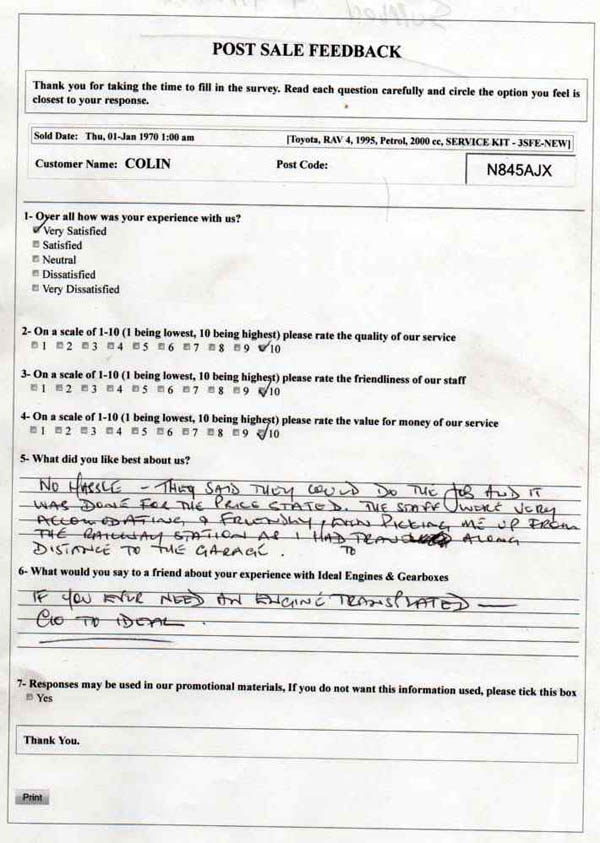 POST SALE FEEDBACK
Thank you for taking the time to fill in the survey. Read each question carefully and circle the option you feel is
closest to your response.
Sold Date: Thu, 01-Jan 1970 1:00 am [Toyota, RAV 4, 1995, Petrol, 2000 cc, SERVICE KIT - 3SFE-NEW]
Customer Name: COLIN Post Code: N845AJX
1- Over all how was your experience with us?
Very Satisfied
Satisfied
Neutral
Dissatisfied
Very Dissatisfied
2- On a scale of 1-10 (1 being lowest, 10 being highest) please rate the quality of our service
1 2 3 4 5 6 7 8 9 10
3- On a scale of 1-10 (1 being lowest, 10 being highest) please rate the friendliness of our staff
1 2 3 4 5 6 7 8 9 10
4- On a scale of 1-10 (1 being lowest, 10 being highest) please rate the value for money of our service
1 2 3 4 5 6 7 8 9 10
5- What did you like best about us?
NO HASSLE - THEY SAID THEY COULD DO THE JOB AND IT
WAS DONE FOR THE PRICE STATED. THE STAFF WERE VERY
ACCOMODATING & FRIENDLY, EVEN PICKING ME UP FROM
THE RAILWAY STATION AS I HAD TO ALONG
DISTANCE TO THE GARAGE.
6- What would you say to a friend about your experience with Ideal Engines & Gearboxes
IF YOU EVER NEED AN ENGINE TRANSPLATED —
GO TO IDEAL.
7- Responses may be used in our promotional materials, If you do not want this information used, please tick this box
Yes
Thank You.
Print